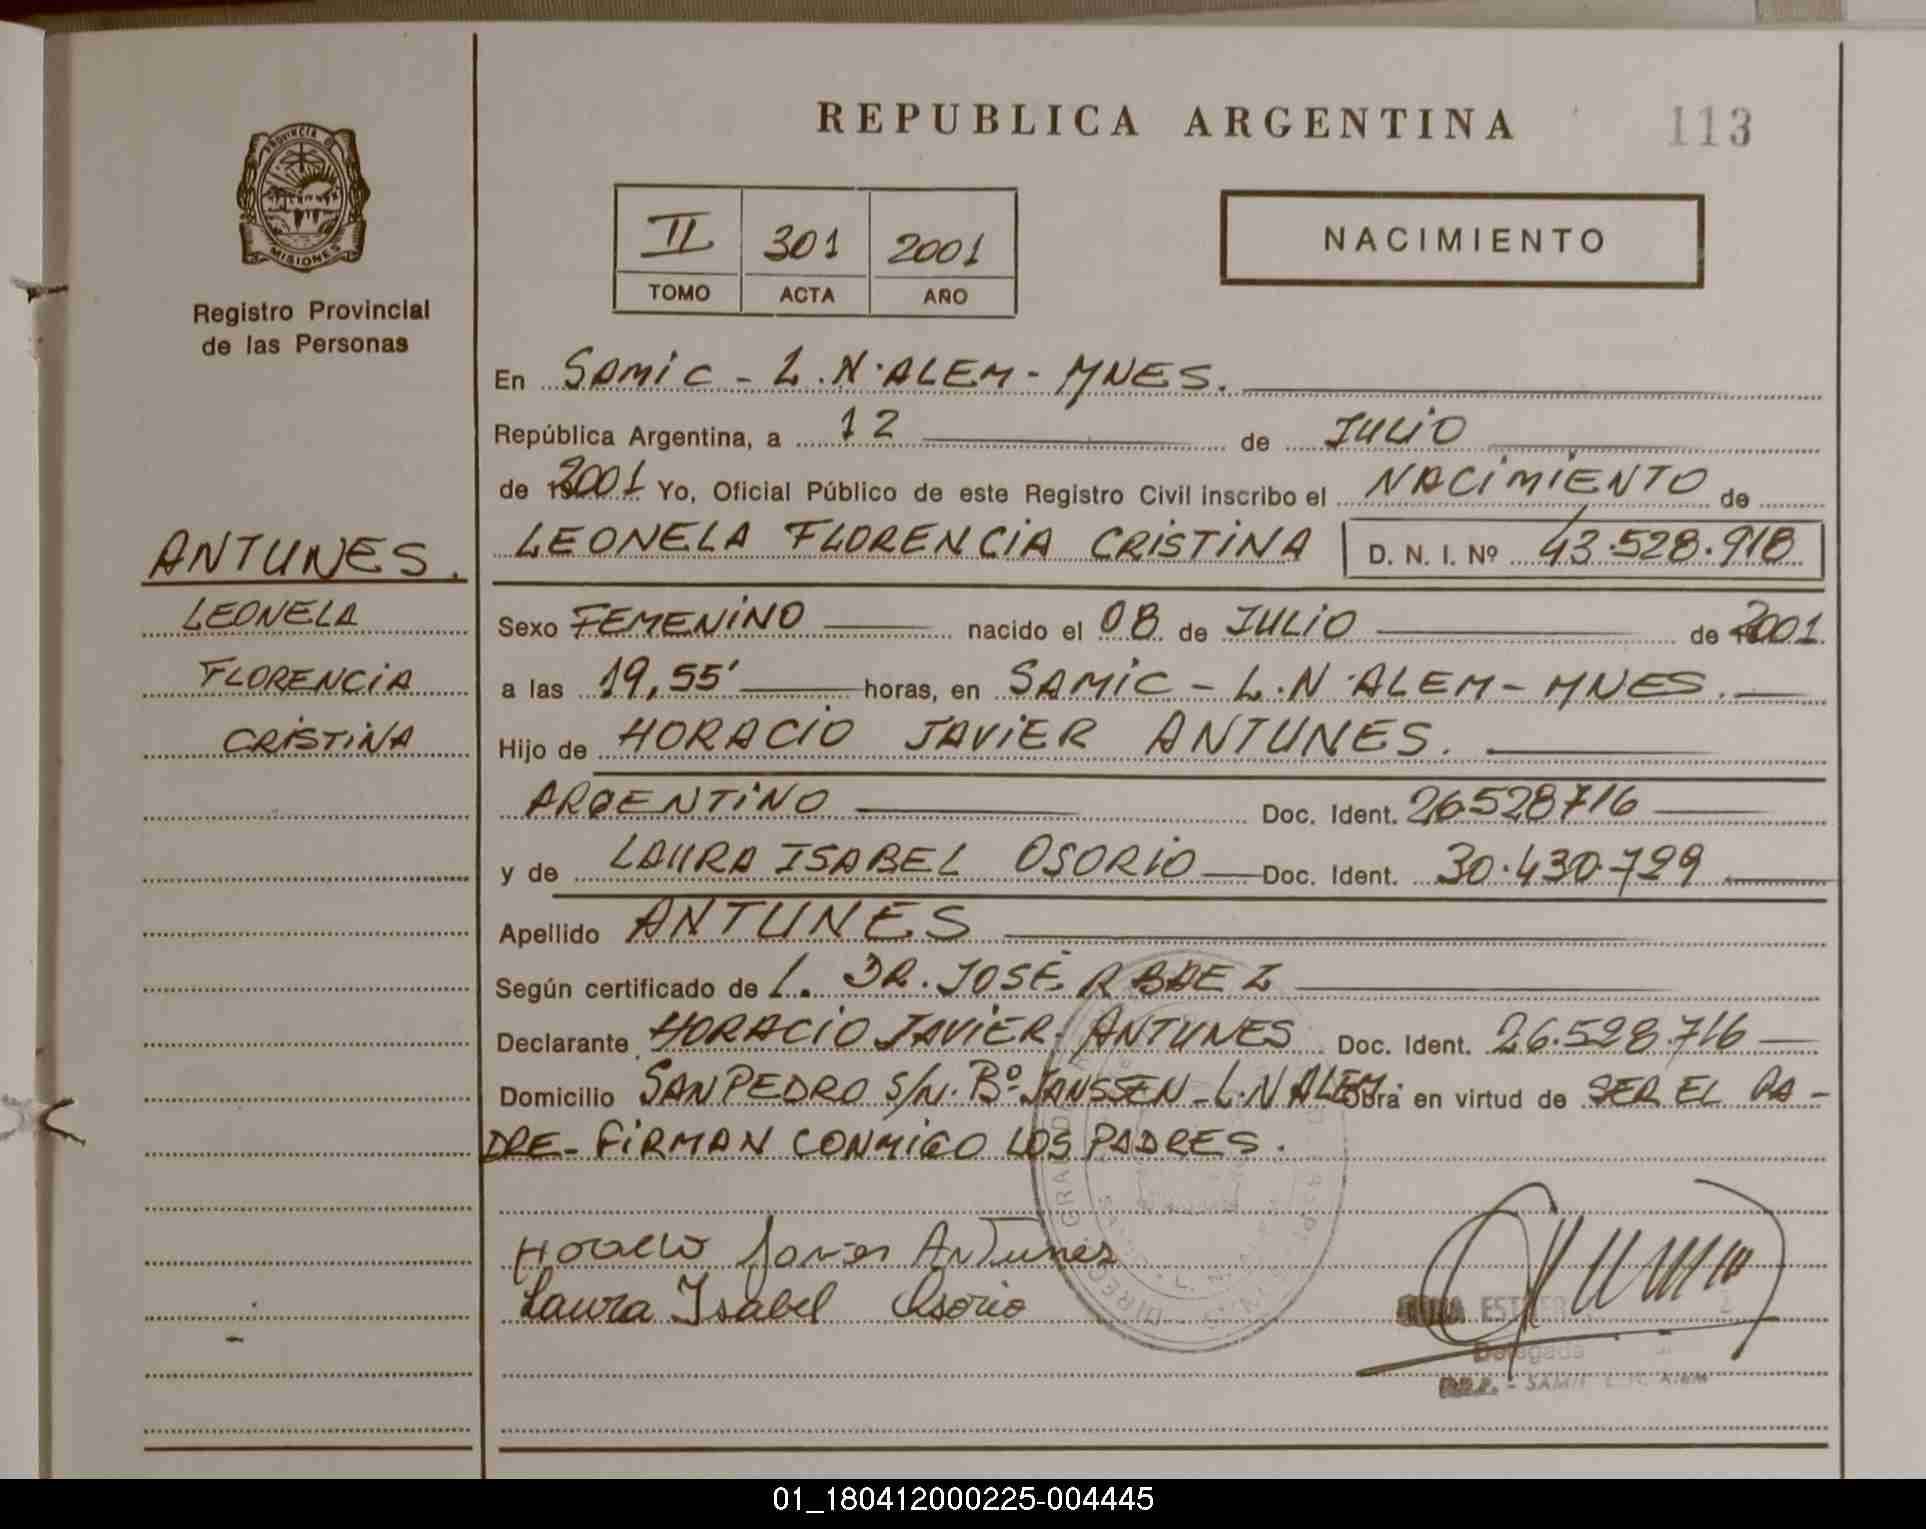 REPUBLICA ARGENTINA
113
PROVINCIA DE
MISIONES
Registro Provincial
de las Personas
II 301 2001
TOMO ACTA AÑO
NACIMIENTO
En SAMIC - L.N.ALEM - MNES.
República Argentina, a 12 de JULIO
de 2001 Yo, Oficial Público de este Registro Civil inscribo el NACIMIENTO de
LEONELA FLORENCIA CRISTINA D. N. I. Nº 43.528.918
ANTUNES.
LEONELA
FLORENCIA
CRISTINA
Sexo FEMENINO nacido el 08 de JULIO de 2001.
a las 19,55' horas, en SAMIC - L.N.ALEM - MNES.
Hijo de HORACIO JAVIER ANTUNES.
ARGENTINO Doc. Ident. 26528716
y de LAURA ISABEL OSORIO Doc. Ident. 30.430.799
Apellido ANTUNES
Según certificado de L. DR. JOSÉ R BAEZ
Declarante HORACIO JAVIER ANTUNES Doc. Ident. 26.528.716
Domicilio SAN PEDRO S/N. Bº JANSSEN - L.N ALEM. Obra en virtud de SER EL PA-
DRE - FIRMAN CONMIGO LOS PADRES.
Horacio Javier Antunes
Laura Isabel Osorio
Delegada
01_180412000225-004445